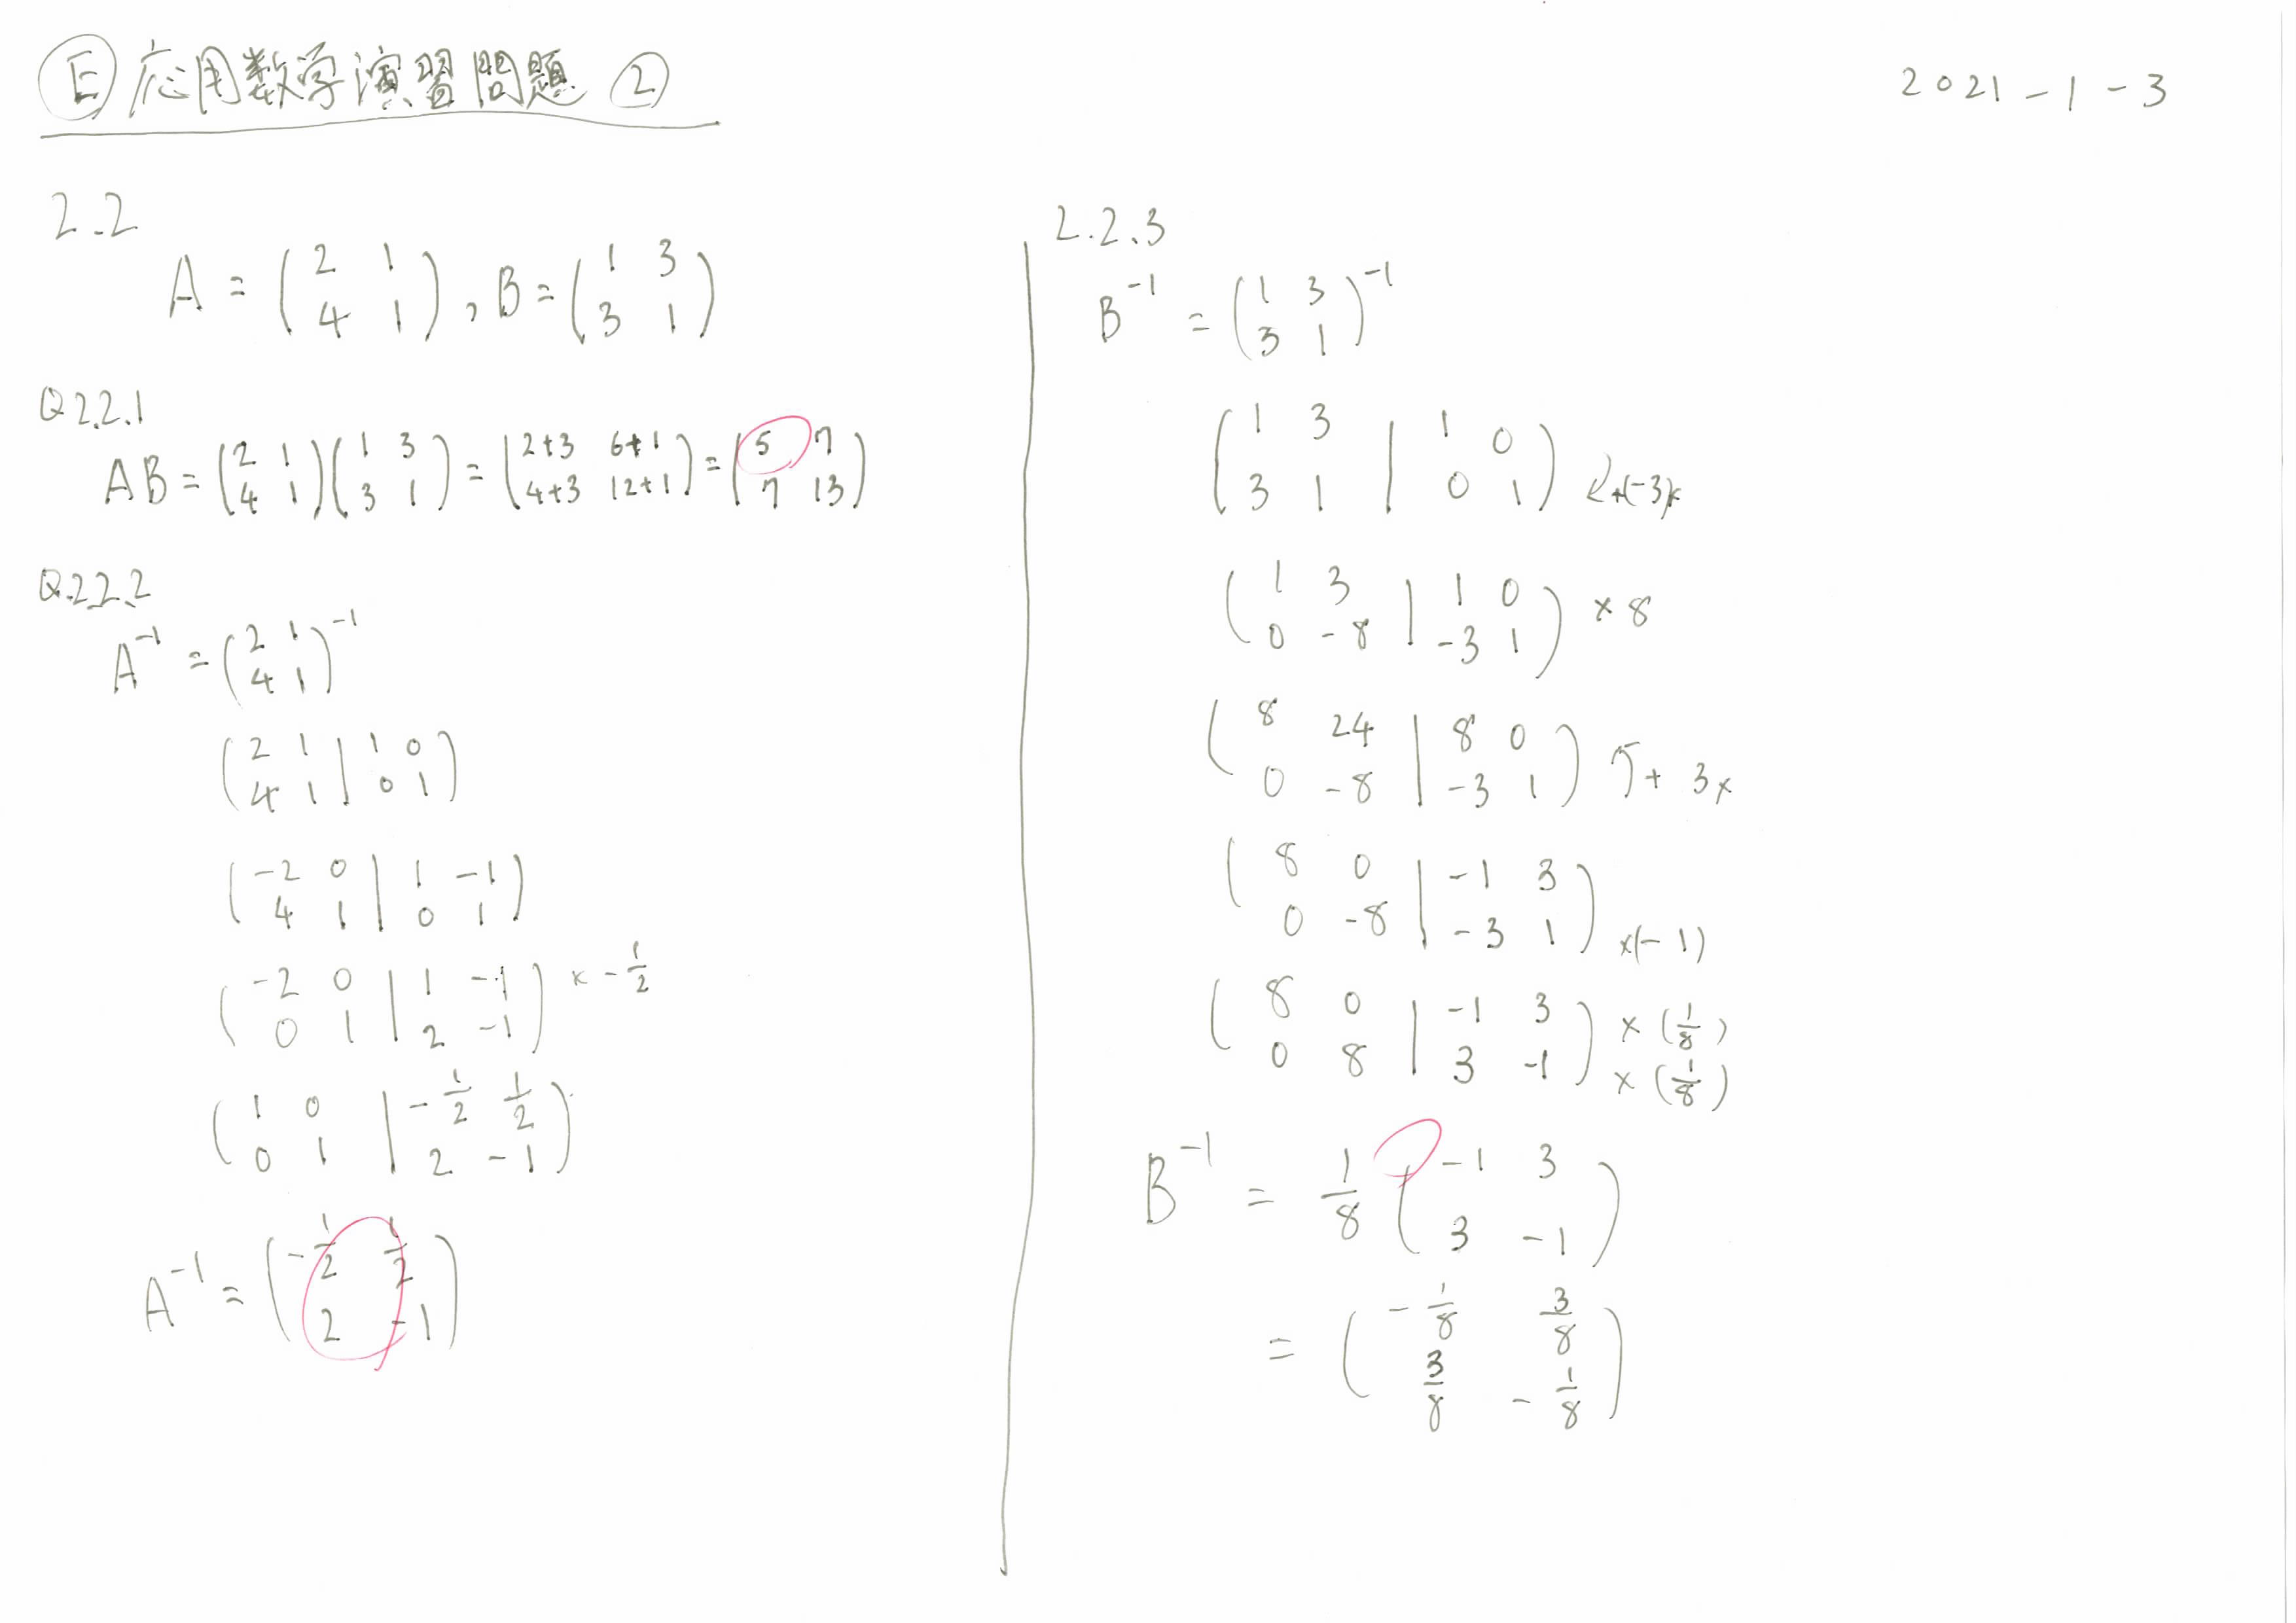 Ⓔ応用数学演習問題 ②
2021-1-3
2.2
A = ( 2 1
4 1 ) , B = ( 1 3
3 1 )
Q2.2.1
AB = ( 2 1
4 1 ) ( 1 3
3 1 ) = ( 2+3 6+1
4+3 12+1 ) = ( 5 7
7 13 )
Q.2.2.2
A⁻¹ = ( 2 1
4 1 )⁻¹
( 2 1 | 1 0
4 1 | 0 1 )
( -2 0 | 1 -1
4 1 | 0 1 )
( -2 0 | 1 -1
0 1 | 2 -1 ) × -1/2
( 1 0 | -1/2 1/2
0 1 | 2 -1 )
A⁻¹ = ( -1/2 1/2
2 -1 )
2.2.3
B⁻¹ = ( 1 3
3 1 )⁻¹
( 1 3 | 1 0
3 1 | 0 1 ) +(-3)×
( 1 3 | 1 0
0 -8 | -3 1 ) × 8
( 8 24 | 8 0
0 -8 | -3 1 ) + 3×
( 8 0 | -1 3
0 -8 | -3 1 ) ×(-1)
( 8 0 | -1 3
0 8 | 3 -1 ) × (1/8)
× (1/8)
B⁻¹ = 1/8 ( -1 3
3 -1 )
= ( -1/8 3/8
3/8 -1/8 )